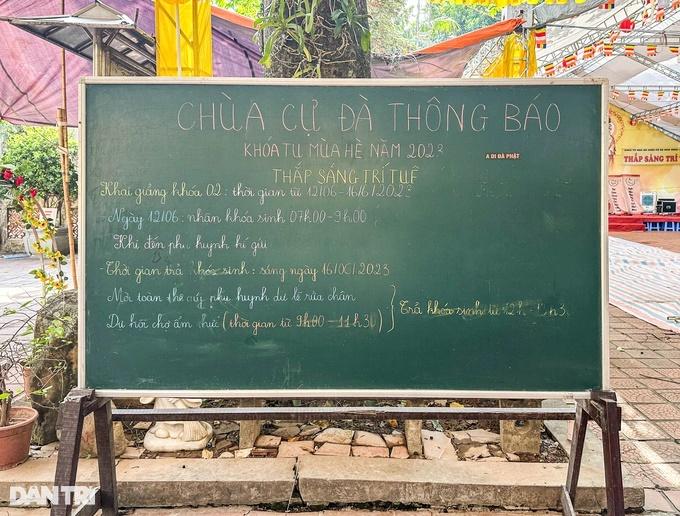 CHÙA CỰ ĐÀ THÔNG BÁO
KHÓA TU MÙA HÈ NĂM 2023
A DI ĐÀ PHẬT
THẮP SÁNG TRÍ TUỆ
Khai giảng khóa 02: thời gian từ 12/06-16/6/2023
Ngày 12/06: nhận khóa sinh 07h00-9h00
Khi đến phụ huynh kí gửi
-Thời gian trả khóa sinh: sáng ngày 16/06/2023
Mời toàn thể quý phụ huynh dự lễ rửa chân
Dự hội chợ ẩm thực (thời gian từ 9h00-11h30)
Trả khóa sinh từ 12h
THẮP SÁNG TRÍ
DÂN TRÍ